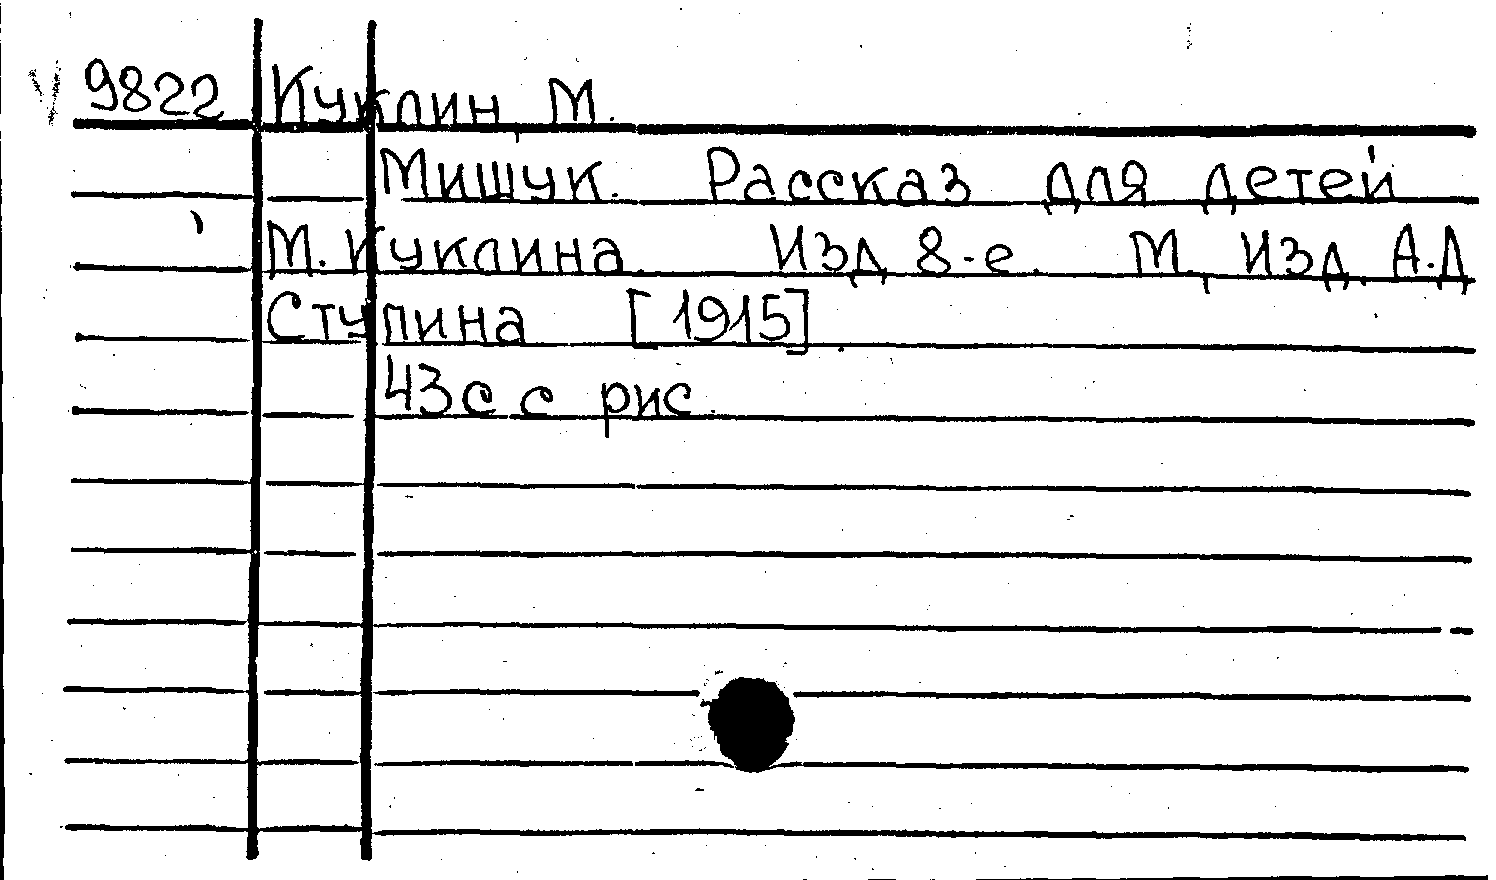 9822 Куклин, М.
Мишук. Рассказ для детей
М. Куклина. Изд 8-е. М., Изд. А.Д
Ступина [1915].
43с с рис.